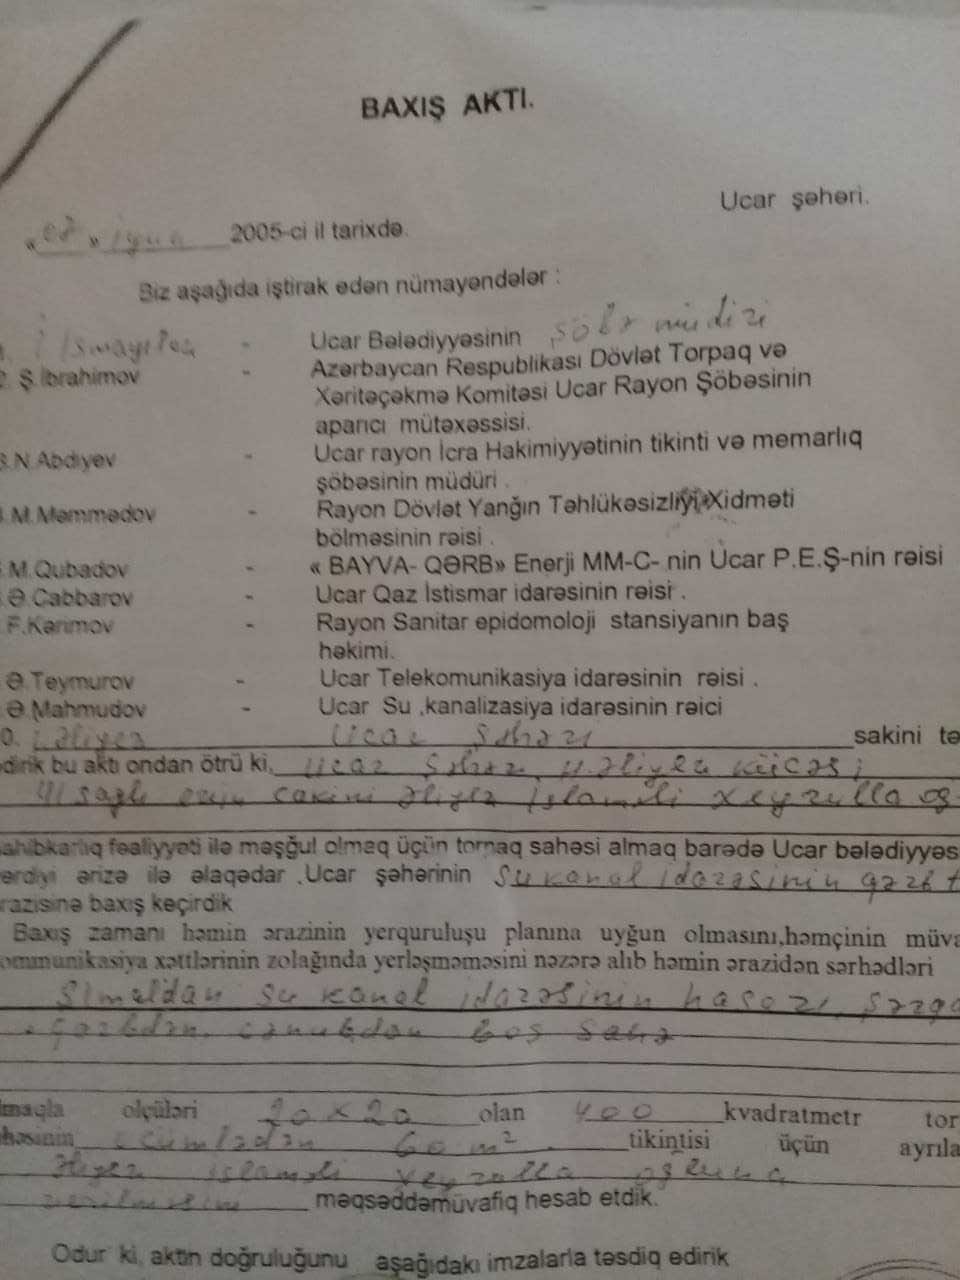 BAXIŞ AKTI.
Ucar şəhəri.
« 02 » iyun 2005-ci il tarixdə.
Biz aşağıda iştirak edən nümayəndələr :
İ İsmayılov - Ucar Bələdiyyəsinin şöbə müdiri
2. Ş.İbrahimov - Azərbaycan Respublikası Dövlət Torpaq və
Xəritəçəkmə Komitəsi Ucar Rayon Şöbəsinin
aparıcı mütəxəssisi.
3.N.Abdıyev - Ucar rayon İcra Hakimiyyətinin tikinti və memarlıq
şöbəsinin müdüri .
M.Məmmədov - Rayon Dövlət Yanğın Təhlükəsizliyi Xidməti
bölməsinin rəisi .
M.Qubadov - « BAYVA- QƏRB» Enerji MM-C- nin Ucar P.E.Ş-nin rəisi
Ə.Cabbarov - Ucar Qaz İstismar idarəsinin rəisi .
F.Kərimov - Rayon Sanitar epidomoloji stansiyanın baş
həkimi.
Ə.Teymurov - Ucar Telekomunikasiya idarəsinin rəisi .
Ə.Mahmudov - Ucar Su ,kanalizasiya idarəsinin rəici
0. İ.Əliyev Ucar Şəhəri sakini tə
dirik bu aktı ondan ötrü ki, Ucar Şəhəri, H.Əliyev küçəsi
41 saylı evin sakini Əliyev İslaməli Xeyrulla oğ
ahibkarlıq fəaliyyəti ilə məşğul olmaq üçün torpaq sahəsi almaq barədə Ucar bələdiyyəs
erdiyi ərizə ilə əlaqədar .Ucar şəhərinin Su kanal idarəsinin qərb t
razisinə baxış keçirdik
Baxış zamanı həmin ərazinin yerquruluşu planına uyğun olmasını,həmçinin müva
ommunikasiya xəttlərinin zolağında yerləşməməsini nəzərə alıb həmin ərazidən sərhədləri
Şimaldan su kanal idarəsinin hasarı, şərqd
qərbdən, cənubdan boş sahə
lmaqla olçüləri 20x20 olan 400 kvadratmetr tor
həsinin o cümlədən 60 m² tikintisi üçün ayrıla
Əliyev İslaməli Xeyrulla oğluna
verilməsini məqsəddəmüvafiq hesab etdik.
Odur ki, aktin doğruluğunu aşağıdakı imzalarla təsdiq edirik